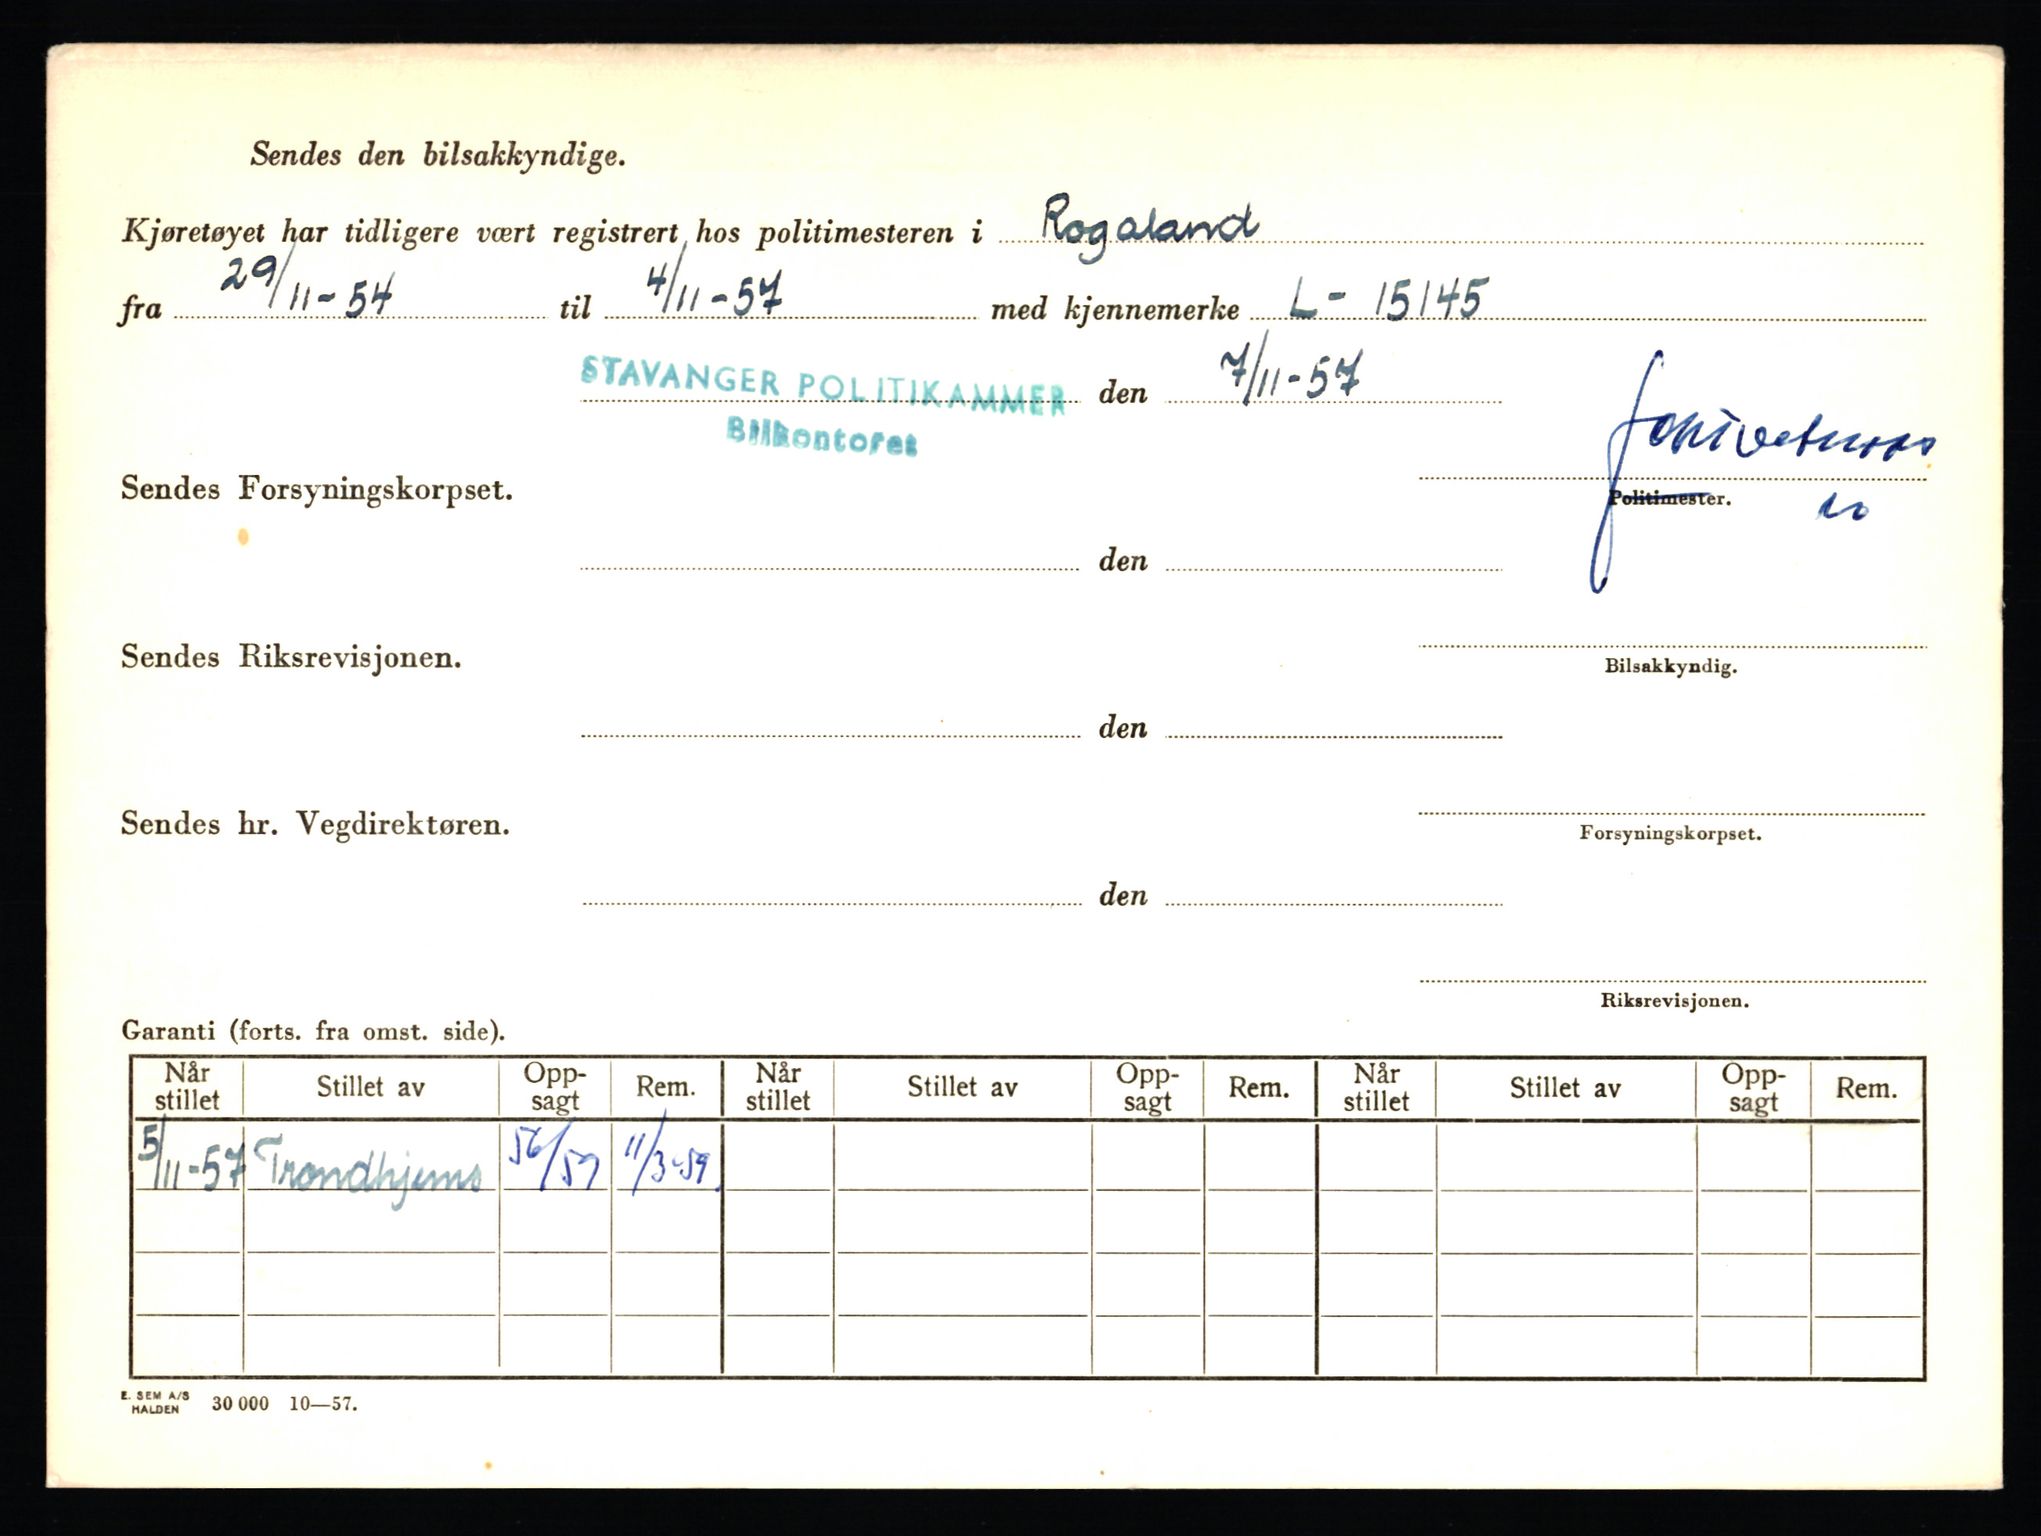 Sendes den bilsakkyndige.
Kjøretøyet har tidligere vært registrert hos politimesteren i Rogaland
fra 29/11-54 til 4/11-57 med kjennemerke L-15145
STAVANGER POLITIKAMMER den 7/11-57
Bilkontoret
Sendes Forsyningskorpset.
Politimester.
den
Sendes Riksrevisjonen.
Bilsakkyndig.
den
Sendes hr. Vegdirektøren.
Forsyningskorpset.
den
Riksrevisjonen.
Garanti (forts. fra omst. side).
Når stillet Stillet av Opp-sagt Rem. Når stillet Stillet av Opp-sagt Rem. Når stillet Stillet av Opp-sagt Rem.
5/11-57 Trondhjems 56/59 11/3-59.
E. SEM A/S
HALDEN 30 000 10—57.